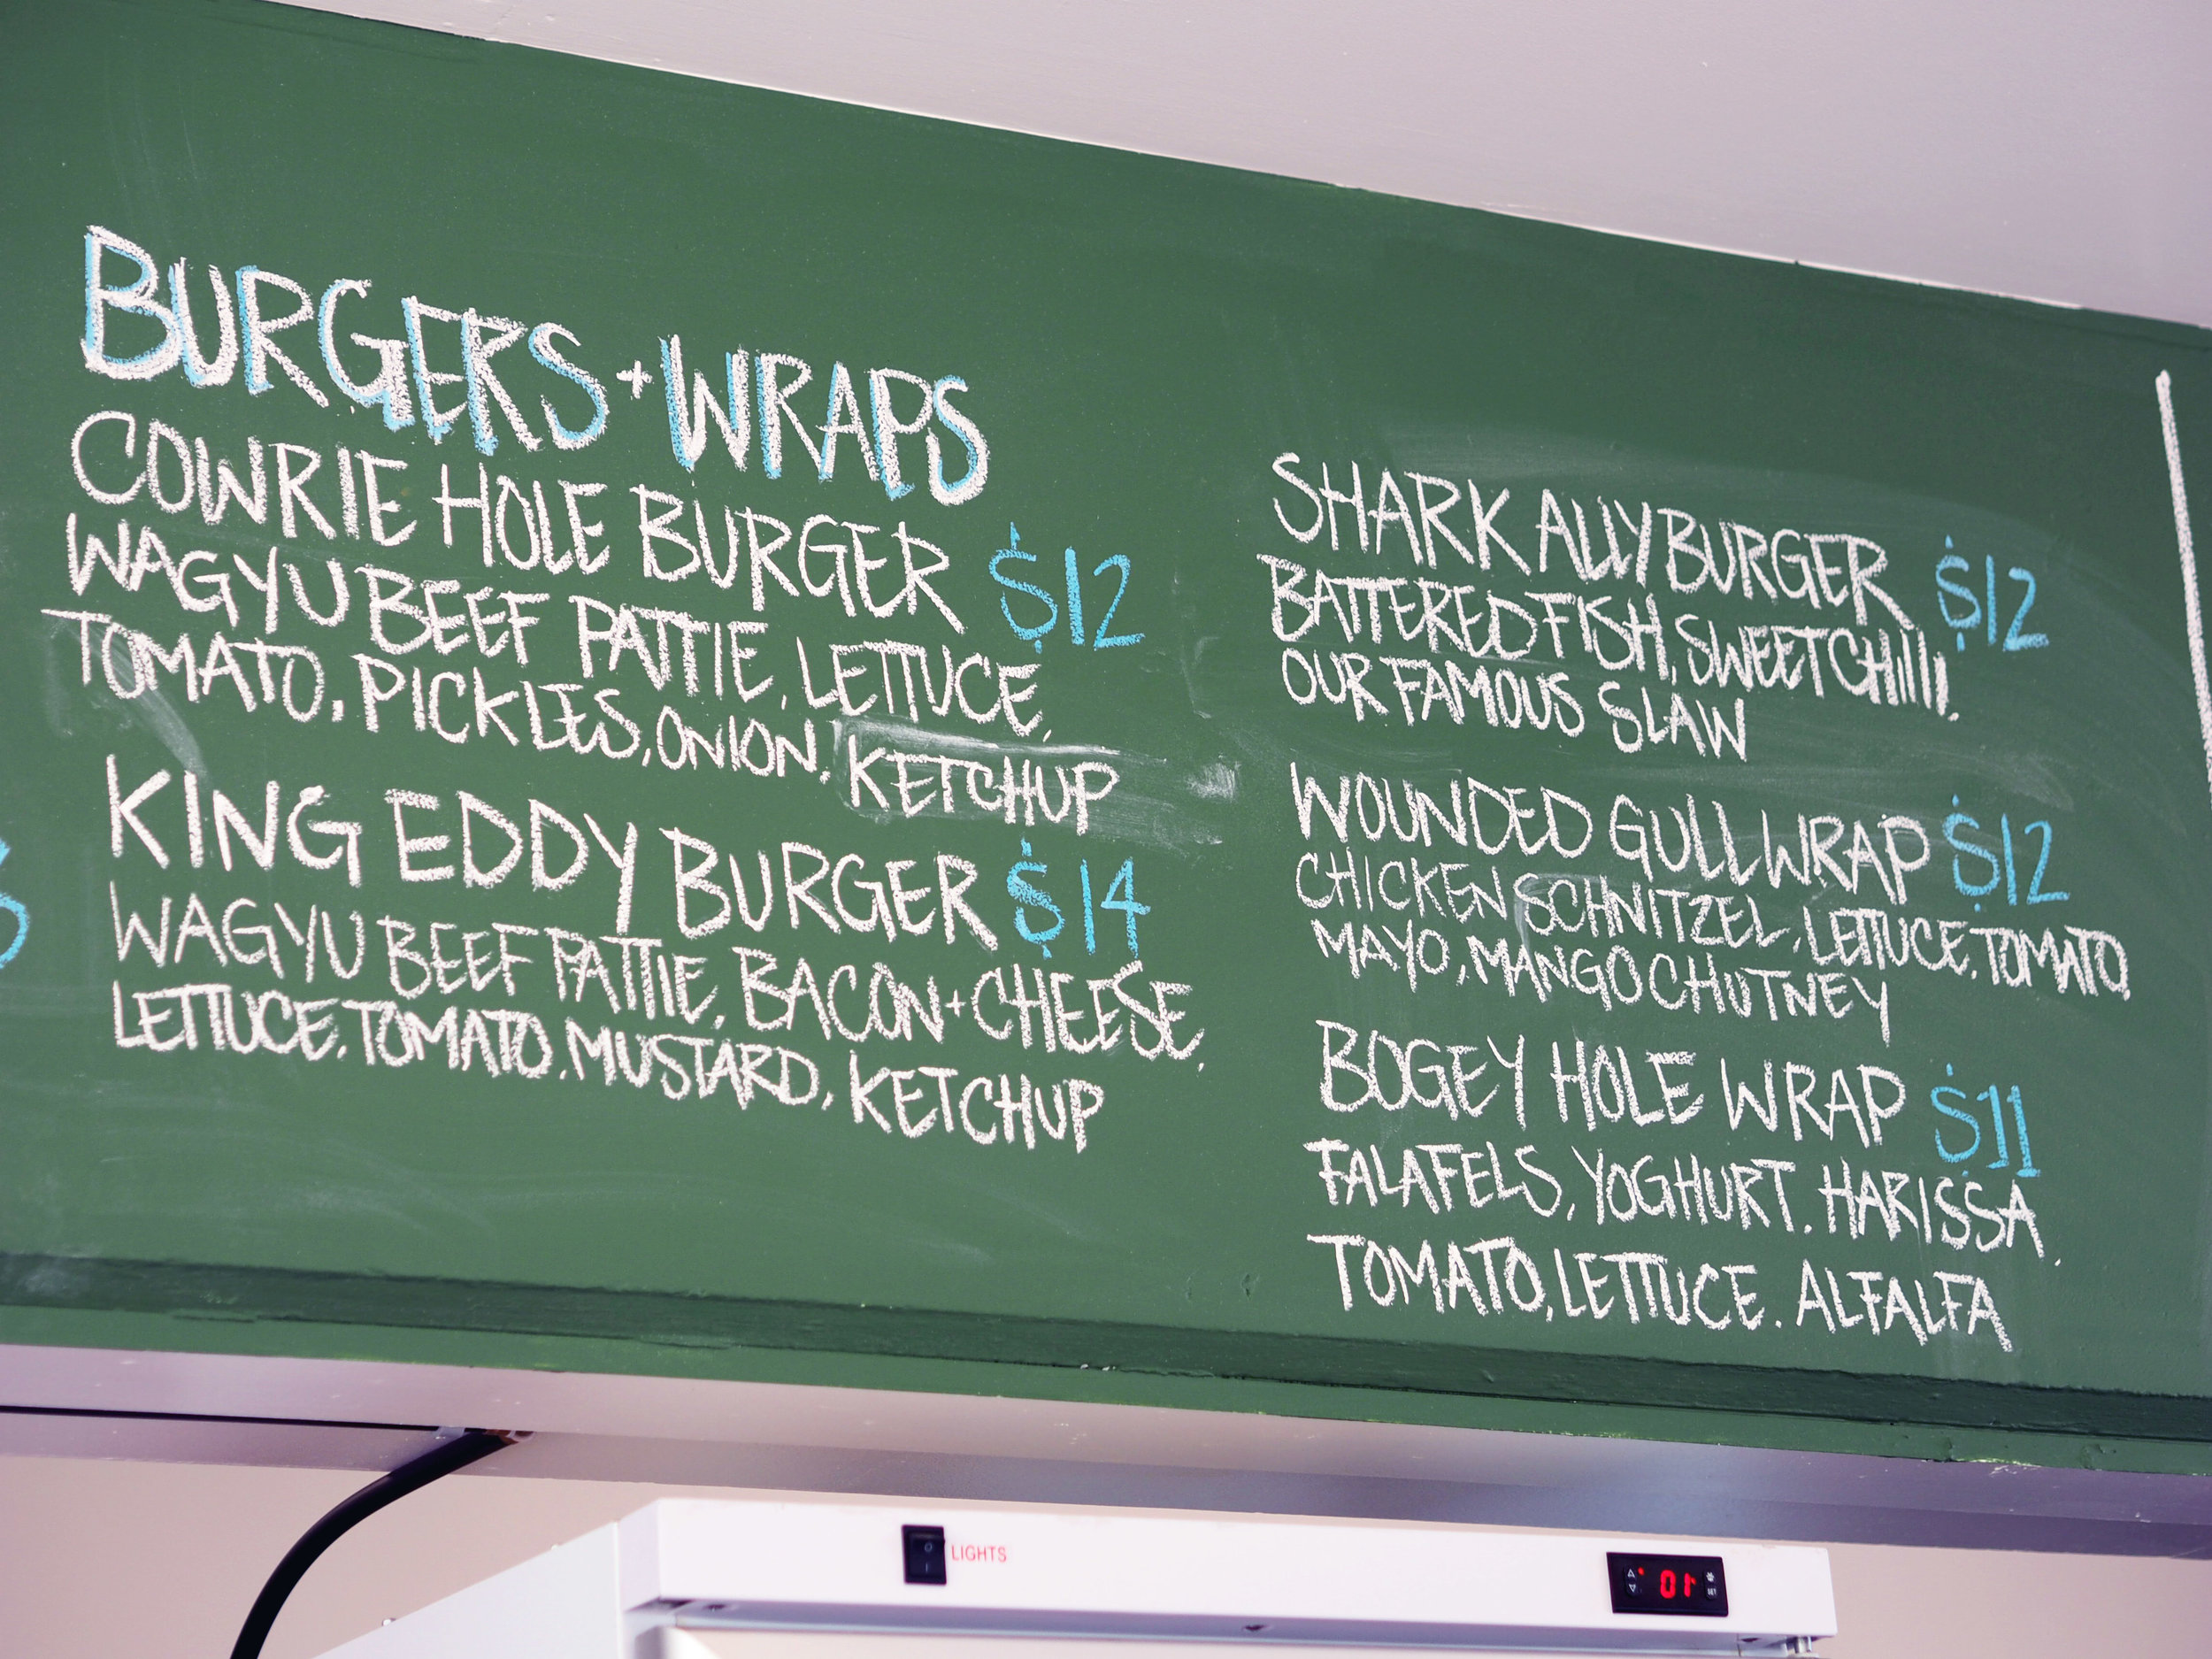 BURGERS + WRAPS
COWRIE HOLE BURGER $12
WAGYU BEEF PATTIE, LETTUCE,
TOMATO, PICKLES, ONION, KETCHUP
KING EDDY BURGER $14
WAGYU BEEF PATTIE, BACON + CHEESE,
LETTUCE, TOMATO, MUSTARD, KETCHUP
SHARK ALLY BURGER $12
BATTERED FISH, SWEET CHILLI,
OUR FAMOUS SLAW
WOUNDED GULL WRAP $12
CHICKEN SCHNITZEL, LETTUCE, TOMATO,
MAYO, MANGO CHUTNEY
BOGEY HOLE WRAP $11
FALAFELS, YOGHURT, HARISSA,
TOMATO, LETTUCE, ALFALFA
LIGHTS
SET